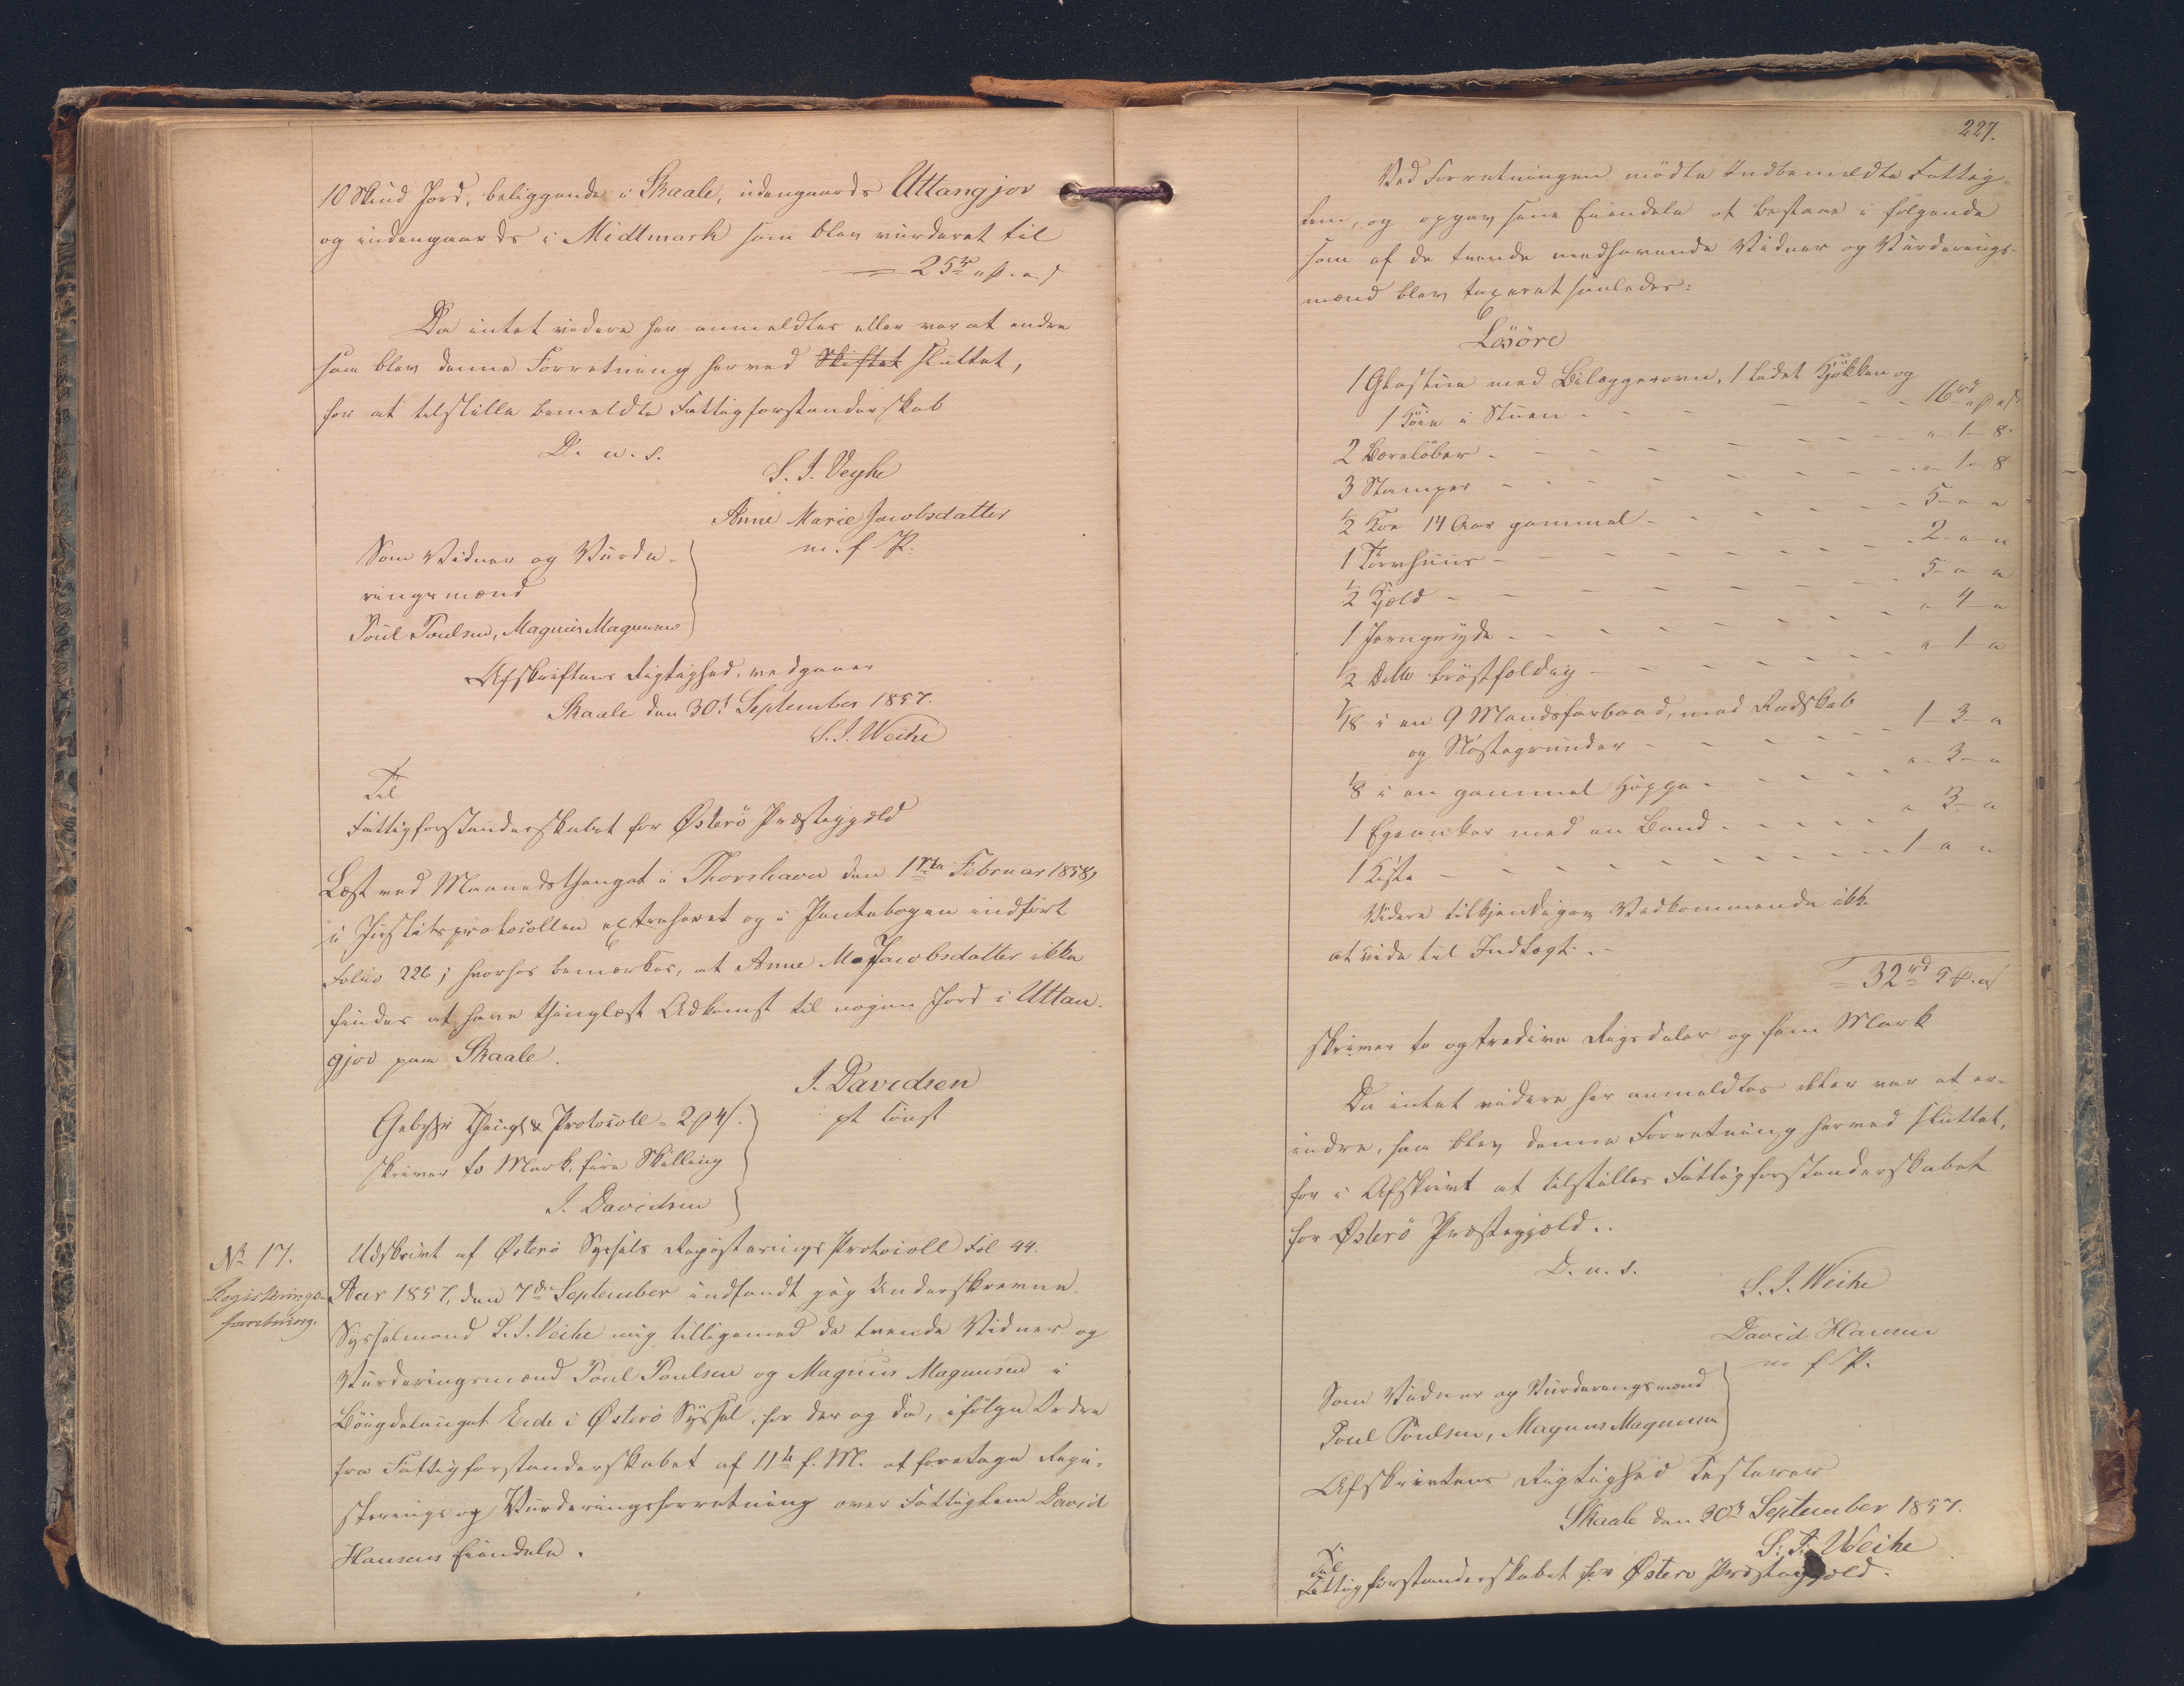 10 Skind Jord, beliggende i Skaale, udengaards Uttangjov
og indengaards i Midtmark som blev vurderet til
25 rd " ß. " s
Da intet videre her anmeldtes eller var at endre
saa blev denne Forretning herved Skiftet sluttet,
for at tilstille bemeldte Fattigforstanderskab
D. u. s.
S. J. Veyhe
Anne Marie Jacobsdatter
m. f. P.
Som Vidner og Vurde-
ringsmænd
Poul Poulsen, Magnus Magnusen
Afskriftens Rigtighed, vedgaaer
Skaale den 30t September 1857.
S. J. Weihe
Til
Fattigforstanderskabet for Østerö Præstegjæld
Læst ved Maanedsthinget i Thorshavn den 1ste Februar 1858,
i Justitsprotocollen extraheret og i Pantebogen indfört
Folio 226; hvorhos bemærkes, at Anne M. Jacobsdatter ikke
findes at have thinglæst Adkomst til nogen Jord i Uttan-
gjov paa Skaale.
J. Davidsen
pt const
Gebyhr Thingl & Protocoll = 2 ß 4 s.
skriver to Mark, fire Skilling
J. Davidsen
No 17.
Registerings-
forretning.
Udskrivt af Østerö Syssels Registerings Protocoll Fol 44.
Aar 1857, den 7de September indfandt jeg Underskrevne
Sysselmand S. J. Weihe mig tilligemed de tvende Vidner og
Vurderingsmænd Poul Poulsen og Magnus Magnusen i
Böigdelauget Eide i Østerö Syssel, for der og da, ifölge Ordre
fra Fattigforstanderskabet af 11te f. M. at foretage Regi-
sterings og Vurderingsforretning over Fattiglem David
Hansens Eiendele.
227.
Ved Forretningen mödte Indbemeldte Fattig-
lem, og opgav sine Eiendele at bestaae i fölgende
som af de tvende medhavende Vidner og Vurderings-
mænd blev taxeret saaledes:
Lösöre
1 Glastue med Bilæggerovn, 1 lidet Kjökken og
1 Köie i Stuen - - - 16 rd " ß " s
2 Boreløber - - - " - 1 - 8
3 Stamper - - - " - 1 - 8
1/2 Koe 14 Aar gammel - - - 5 - " - "
1 Törvhuus - - - 2 - " - "
1/2 Hjeld - - - 5 - " - "
1 Jerngryde - - - " - 4 - "
1/2 Ditto bröstfældig - - - " - 1 - "
1/18 i en 9 Mandsfarbaad, med Redskab
og Nöstegrunder - - - 1 - 3 - "
1/8 i en gammel Hoppe - - - " - 3 - "
1 Egeanker med en Baand - - - " - 3 - "
1 Kiste - - - 1 - " - "
Videre tilkjendegav Vedkommende ikke
at vide til Indtægt.
32 rd 5 ß. " s
skriver to og tredive Rigsdaler og fem Mark
Da intet videre her anmeldtes eller var at er-
indre, saa blev denne Forretning herved sluttet,
for i Afskrivt at tilstilles Fattigforstanderskabet
for Østerö Præstegjæld.
D. u. s.
S. J. Weihe
David Hansen
m. f. P.
Som Vidner og Vurderingsmænd
Poul Poulsen, Magnus Magnusen
Afskrivtens Rigtighed Testerer
Skaale den 30t September 1857.
S. J. Weihe
Til
Fattigforstanderskabet for Østerö Præstegjæld.